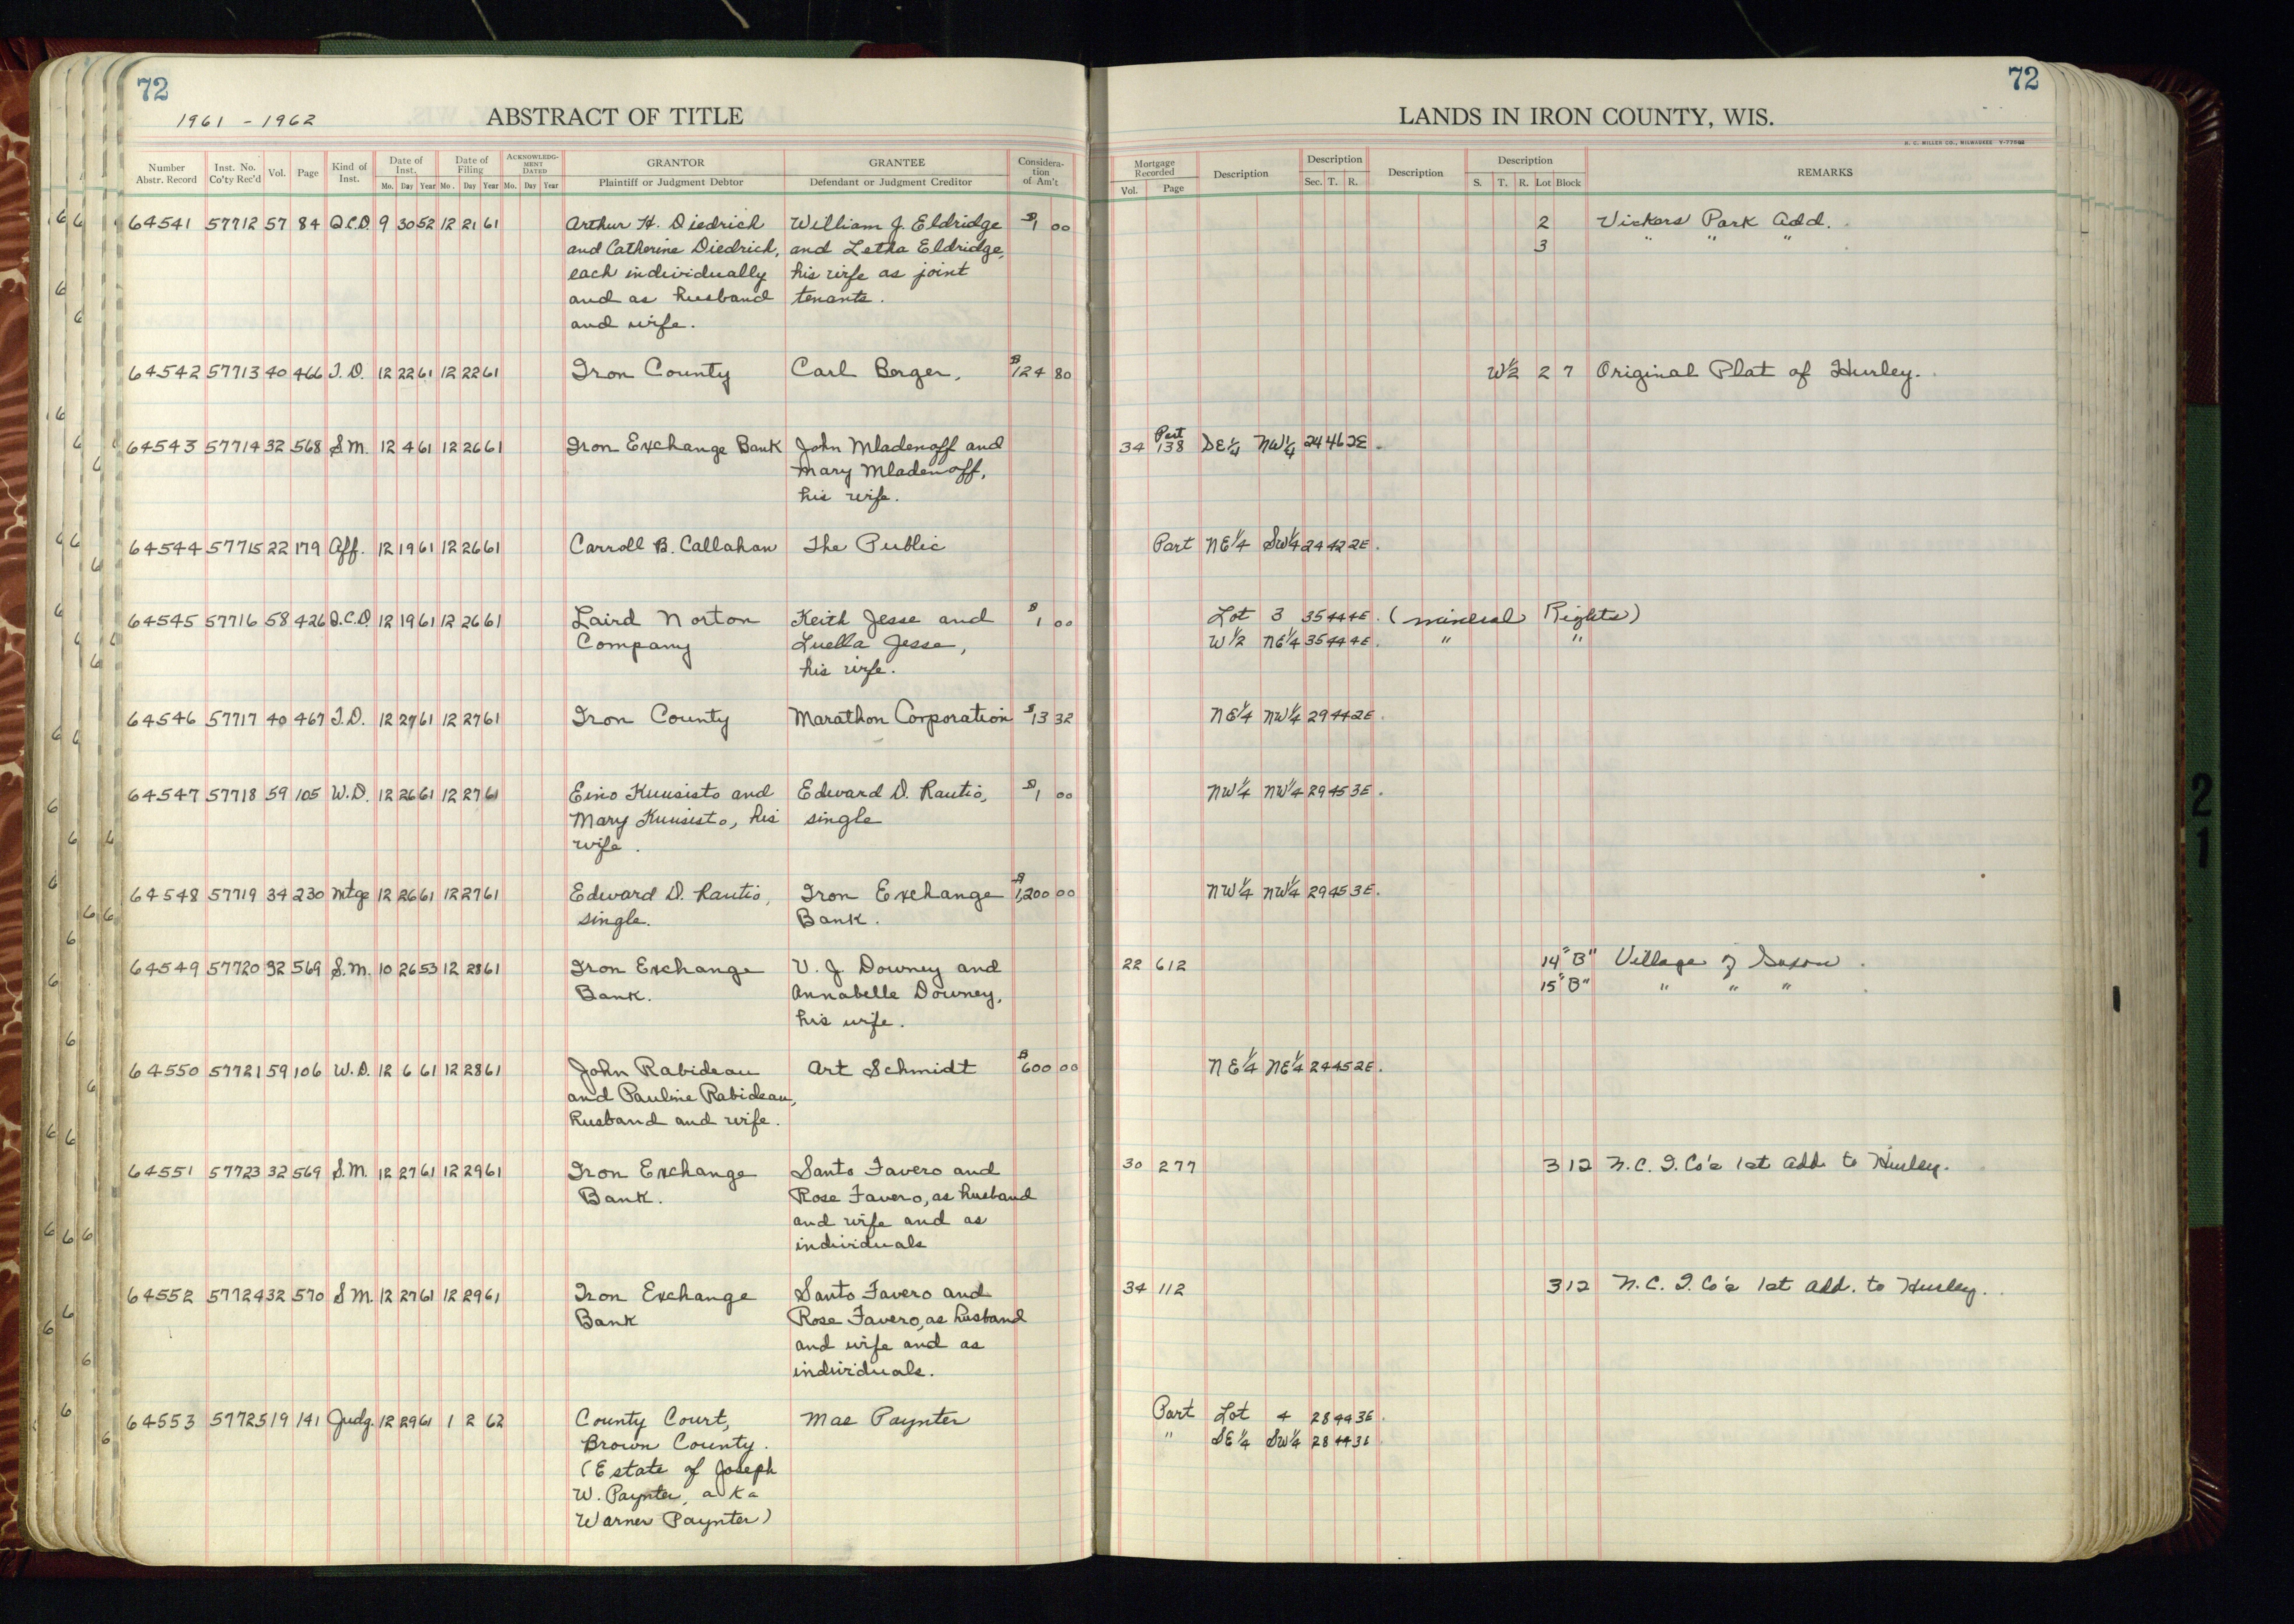 72
1961 - 1962
ABSTRACT OF TITLE
Number Abstr. Record | Inst. No. Co'ty Rec'd | Vol. | Page | Kind of Inst. | Date of Inst. Mo. Day Year | Date of Filing Mo. Day Year | ACKNOWLEDGMENT DATED Mo. Day Year | GRANTOR Plaintiff or Judgment Debtor | GRANTEE Defendant or Judgment Creditor | Consideration of Am't
64541 57712 57 84 Q.C.D. 9 30 52 12 21 61 Arthur H. Diedrich William J. Eldridge $1 00
and Catherine Diedrich, and Letha Eldridge,
each individually his wife as joint
and as husband tenants.
and wife.
64542 57713 40 466 T.D. 12 22 61 12 22 61 Iron County Carl Berger, $124 80
64543 57714 32 568 S.M. 12 4 61 12 26 61 Iron Exchange Bank John Mladenoff and
Mary Mladenoff,
his wife.
64544 57715 22 179 Aff. 12 19 61 12 26 61 Carroll B. Callahan The Public
64545 57716 58 426 Q.C.D. 12 19 61 12 26 61 Laird Norton Keith Jesse and $1 00
Company Luella Jesse,
his wife.
64546 57717 40 467 T.D. 12 27 61 12 27 61 Iron County Marathon Corporation $13 32
64547 57718 59 105 W.D. 12 26 61 12 27 61 Eino Kuusisto and Edward D. Rautio, $1 00
Mary Kuusisto, his single
wife.
64548 57719 34 230 Mtge 12 26 61 12 27 61 Edward D. Rautio, Iron Exchange $1,200 00
single. Bank.
64549 57720 32 569 S.M. 10 26 53 12 28 61 Iron Exchange V. J. Downey and
Bank. Annabelle Downey,
his wife.
64550 57721 59 106 W.D. 12 6 61 12 28 61 John Rabideau Art Schmidt $600 00
and Pauline Rabideau,
husband and wife.
64551 57723 32 569 S.M. 12 27 61 12 29 61 Iron Exchange Santo Favero and
Bank. Rose Favero, as husband
and wife and as
individuals
64552 57724 32 570 S.M. 12 27 61 12 29 61 Iron Exchange Santo Favero and
Bank Rose Favero, as husband
and wife and as
individuals.
64553 57725 19 141 Judg. 12 29 61 1 2 62 County Court, Mae Paynter
Brown County.
(Estate of Joseph
W. Paynter, a k a
Warner Paynter)
72
LANDS IN IRON COUNTY, WIS.
H. C. MILLER CO., MILWAUKEE
Mortgage Recorded Vol. Page | Description | Description Sec. T. R. | Description | Description S. T. R. Lot Block | REMARKS
2 Vickers Park Add.
3 " " "
W½ 2 7 Original Plat of Hurley.
34 Part 138 SE¼ NW¼ 24 46 2E.
Part NE¼ SW¼ 24 42 2E.
Lot 3 35 44 4E. (Mineral Rights)
W½ NE¼ 35 44 4E. " "
NE¼ NW¼ 29 44 2E.
NW¼ NW¼ 29 45 3E.
NW¼ NW¼ 29 45 3E.
22 612 14 "B" Village of Saxon.
15 "B" " " "
NE¼ NE¼ 24 45 2E.
30 277 3 12 N.C.I.Co's 1st Add. to Hurley.
34 112 3 12 N.C.I.Co's 1st Add. to Hurley.
Part Lot 4 28 44 3E.
" SE¼ SW¼ 28 44 3E
21